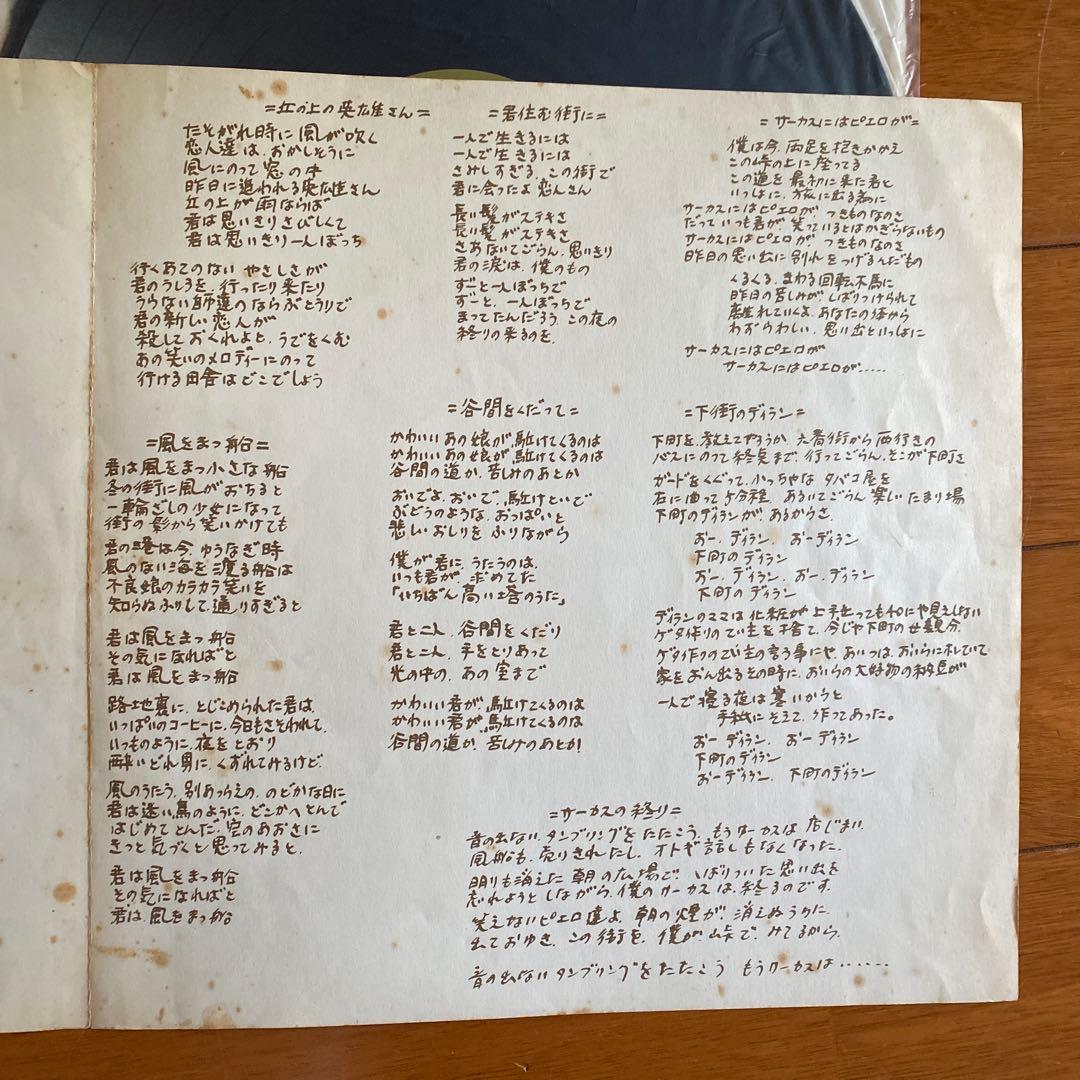 =丘の上の英雄さん=
たそがれ時に 風が吹く
恋人達は、おかしそうに
風にのって 窓の中
昨日に追われる英雄さん
丘の上が 雨ならば
君は思いきりさびしくて
君は思いきり一人ぼっち
行くあてのない やさしさが
君のうしろを、行ったり来たり
うらない師達のならぶとうりで
君の新しい恋人が
殺しておくれよと、うでをくむ
あの笑いのメロディーにのって
行ける田舎はどこでしょう
=君住む街に=
一人で生きるには
一人で生きるには
さみしすぎる、この街で
君に会ったよ 恋人さん
長い髪がステキさ
長い髪がステキさ
さあないてごらん、思いきり
君の涙は、僕のもの
ずーと一人ぼっちで
ずーと、一人ぼっちで
まってたんだろう、この夜の
終りの来るのを、
=サーカスにはピエロが=
僕は今、両足を抱きかかえ
この峠の上に座ってる
この道を最初に来た君と
いっしょに、旅に出る為に
サーカスにはピエロが、つきものなのさ
だっていつも君が、笑っているとはかぎらないもの
サーカスにはピエロが つきものなのさ
昨日の思い出に別れをつげるんだもの
くるくる、まわる回転木馬に
昨日の苦しみが しばりつけられて
離れていくよ、あなたの体から
わずらわしい、思い出といっしょに
サーカスにはピエロが
サーカスにはピエロが.....
=風をまつ船=
君は風をまつ小さな船
冬の街に風がおちると
一輪ざしの少女になって
街の影から笑いかけても
君の港は今、ゆうなぎ時
風のない海を渡る船は
不良娘のカラカラ笑いを
知らぬふりして、通りすぎると
君は風をまつ船
その気になればと
君は風をまつ船
路地裏に、とじこめられた君は、
いっぱいのコーヒーに、今日もさそわれて、
いつものように、夜をとおり
酔いどれ男に、くずれてみるけど
風のうたう、別あつらえの、のどかな日に
君は迷い鳥のように、どこかへとんで
はじめてとんだ、空のあおさに
きっと気づくと思ってみると、
君は風をまつ船
その気になればと
君は、風をまつ船
=谷間をくだって=
かわいいあの娘が、駈けてくるのは
かわいいあの娘が、駈けてくるのは
谷間の道か、苦しみのあとか
おいでよ、おいで、駈けといで
ぶどうのような、おっぱいと
悲しいおしりを ふりながら
僕が君に、うたうのは、
いつも君が、求めてた
「いちばん高い塔のうた」
君と二人、谷間をくだり
君と二人、手をとりあって
光の中の、あの室まで
かわいい君が、駈けてくるのは
かわいい君が、駈けてくるのは
谷間の道か、苦しみのあとか
=下街のディラン=
下町を、教えてやろうか、六番街から西行きの
バスにのって終点まで、行ってごらん、そこが下町さ
ガードをくぐって、小っちゃな タバコ屋を
右に曲って5分程、あるいてごらん 楽しいたまり場
下町のディランが、あるからさ、
おー ディラン、おーディラン
下町のディラン
おー、ディラン、おー、ディラン
下町のディラン
ディランのママは 化粧が上手とっても40にや見えしない
ゲタ作りのてい主を捨て、今じゃ下町の女親分、
ゲタ作りのてい主の言う事にや、あいつは、おいらにホレていて
家をおん出るその時に、おいらの大好物の納豆が
一人で寝る夜は寒いからと
手紙にそえて、作ってあった。
おー ディラン、おー ディラン
下町のディラン
おーディラン、下町のディラン
=サーカスの終り=
音の出ない、タンブリングをたたこう、もうサーカスは店じまい、
風船も、売りきれたし、オトギ話しもなくなった、
明りも消えた朝の広場で、しばりついた思い出を
忘れようとしながら、僕のサーカスは、終るのです、
笑えないピエロ達よ、朝の煙が、消えぬうちに、
出ておゆき、この街を、僕が峠で、みてるから、
音の出ないタンブリングをたたこう もうサーカスは......